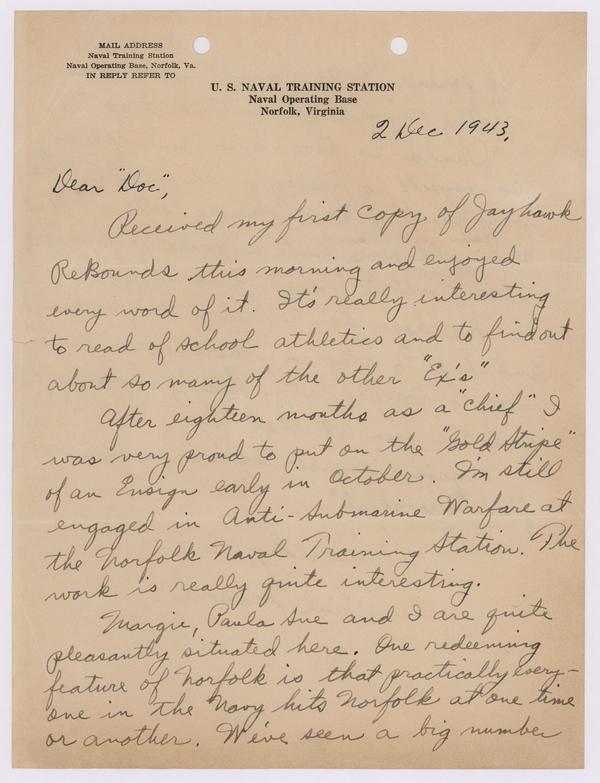 MAIL ADDRESS
Naval Training Station
Naval Operating Base, Norfolk, Va.
IN REPLY REFER TO
U. S. NAVAL TRAINING STATION
Naval Operating Base
Norfolk, Virginia
2 Dec 1943.
Dear "Doc",
Received my first copy of Jayhawk
ReBounds this morning and enjoyed
every word of it. It's really interesting
to read of school athletics and to find out
about so many of the other "Ex's"
After eighteen months as a "Chief" I
was very proud to put on the "Gold Stripe"
of an Ensign early in October. I'm still
engaged in Anti-Submarine Warfare at
the Norfolk Naval Training Station. The
work is really quite interesting.
Margie, Paula Sue and I are quite
pleasantly situated here. One redeeming
feature of Norfolk is that practically every-
one in the Navy hits Norfolk at one time
or another. We've seen a big number